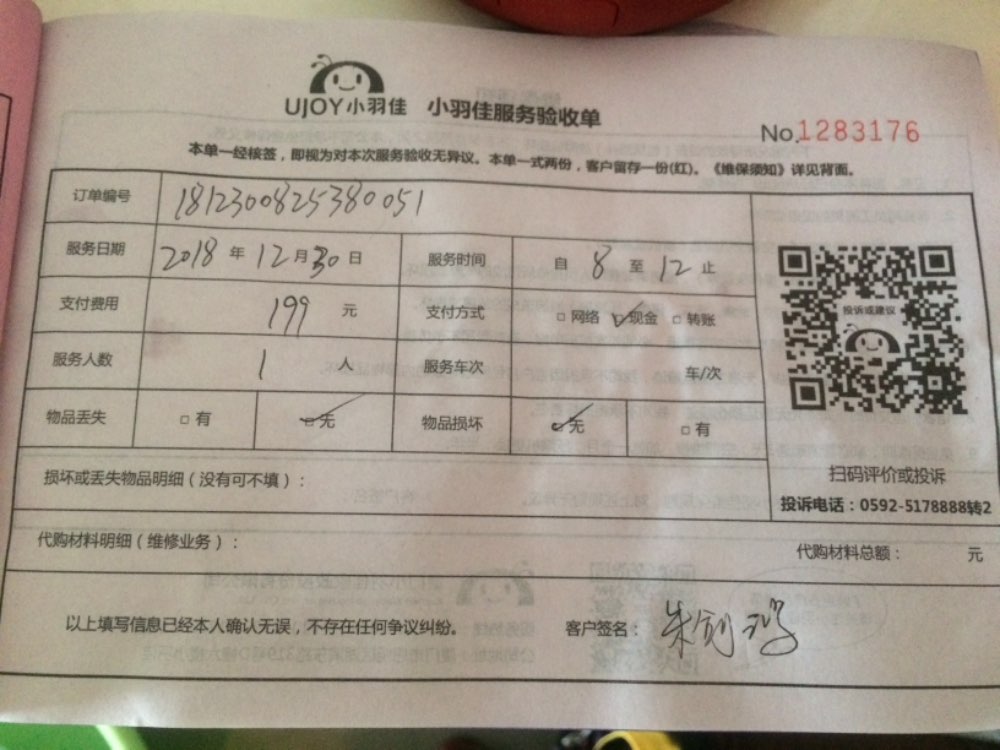 UJOY小羽佳 小羽佳服务验收单
No.1283176
本单一经核签，即视为对本次服务验收无异议。本单一式两份，客户留存一份(红)。《维保须知》详见背面。
订单编号 1812300825380051
服务日期 2018 年 12 月 30 日 服务时间 自 8 至 12 止
支付费用 199 元 支付方式 □网络 ☑现金 □转账
投诉或建议
服务人数 1 人 服务车次 车/次
物品丢失 □有 ☑无 物品损坏 ☑无 □有
扫码评价或投诉
损坏或丢失物品明细（没有可不填）：
投诉电话：0592-5178888转2
代购材料明细（维修业务）： 代购材料总额： 元
以上填写信息已经本人确认无误，不存在任何争议纠纷。 客户签名： 朱